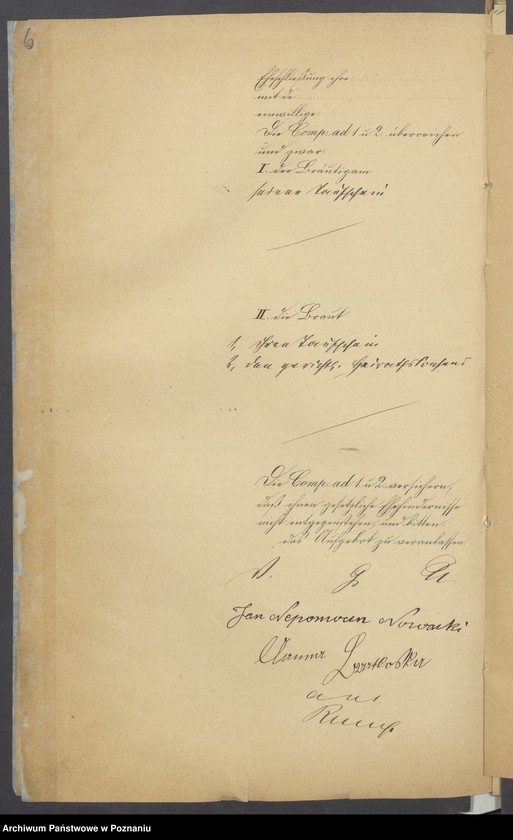 6
Eheschließung ihre
mit de
einwillige
Die Comp. ad 1 u 2 überreichen
und zwar
I. der Bräutigam
seinen Taufschein
II. die Braut
1, Ihren Taufschein
2, den gerichtl. Heirathskonsens
Die Comp. ad 1. u 2 versichern,
daß ihnen gesetzliche Ehehindernisse
nicht entgegenstehen, und bitten,
das Aufgebot zu veranlassen.
V. G. U.
Jan Nepomucen Nowacki
Anna
a u s
Archiwum Państwowe w Poznaniu
www.szukajwarchiwach.gov.pl